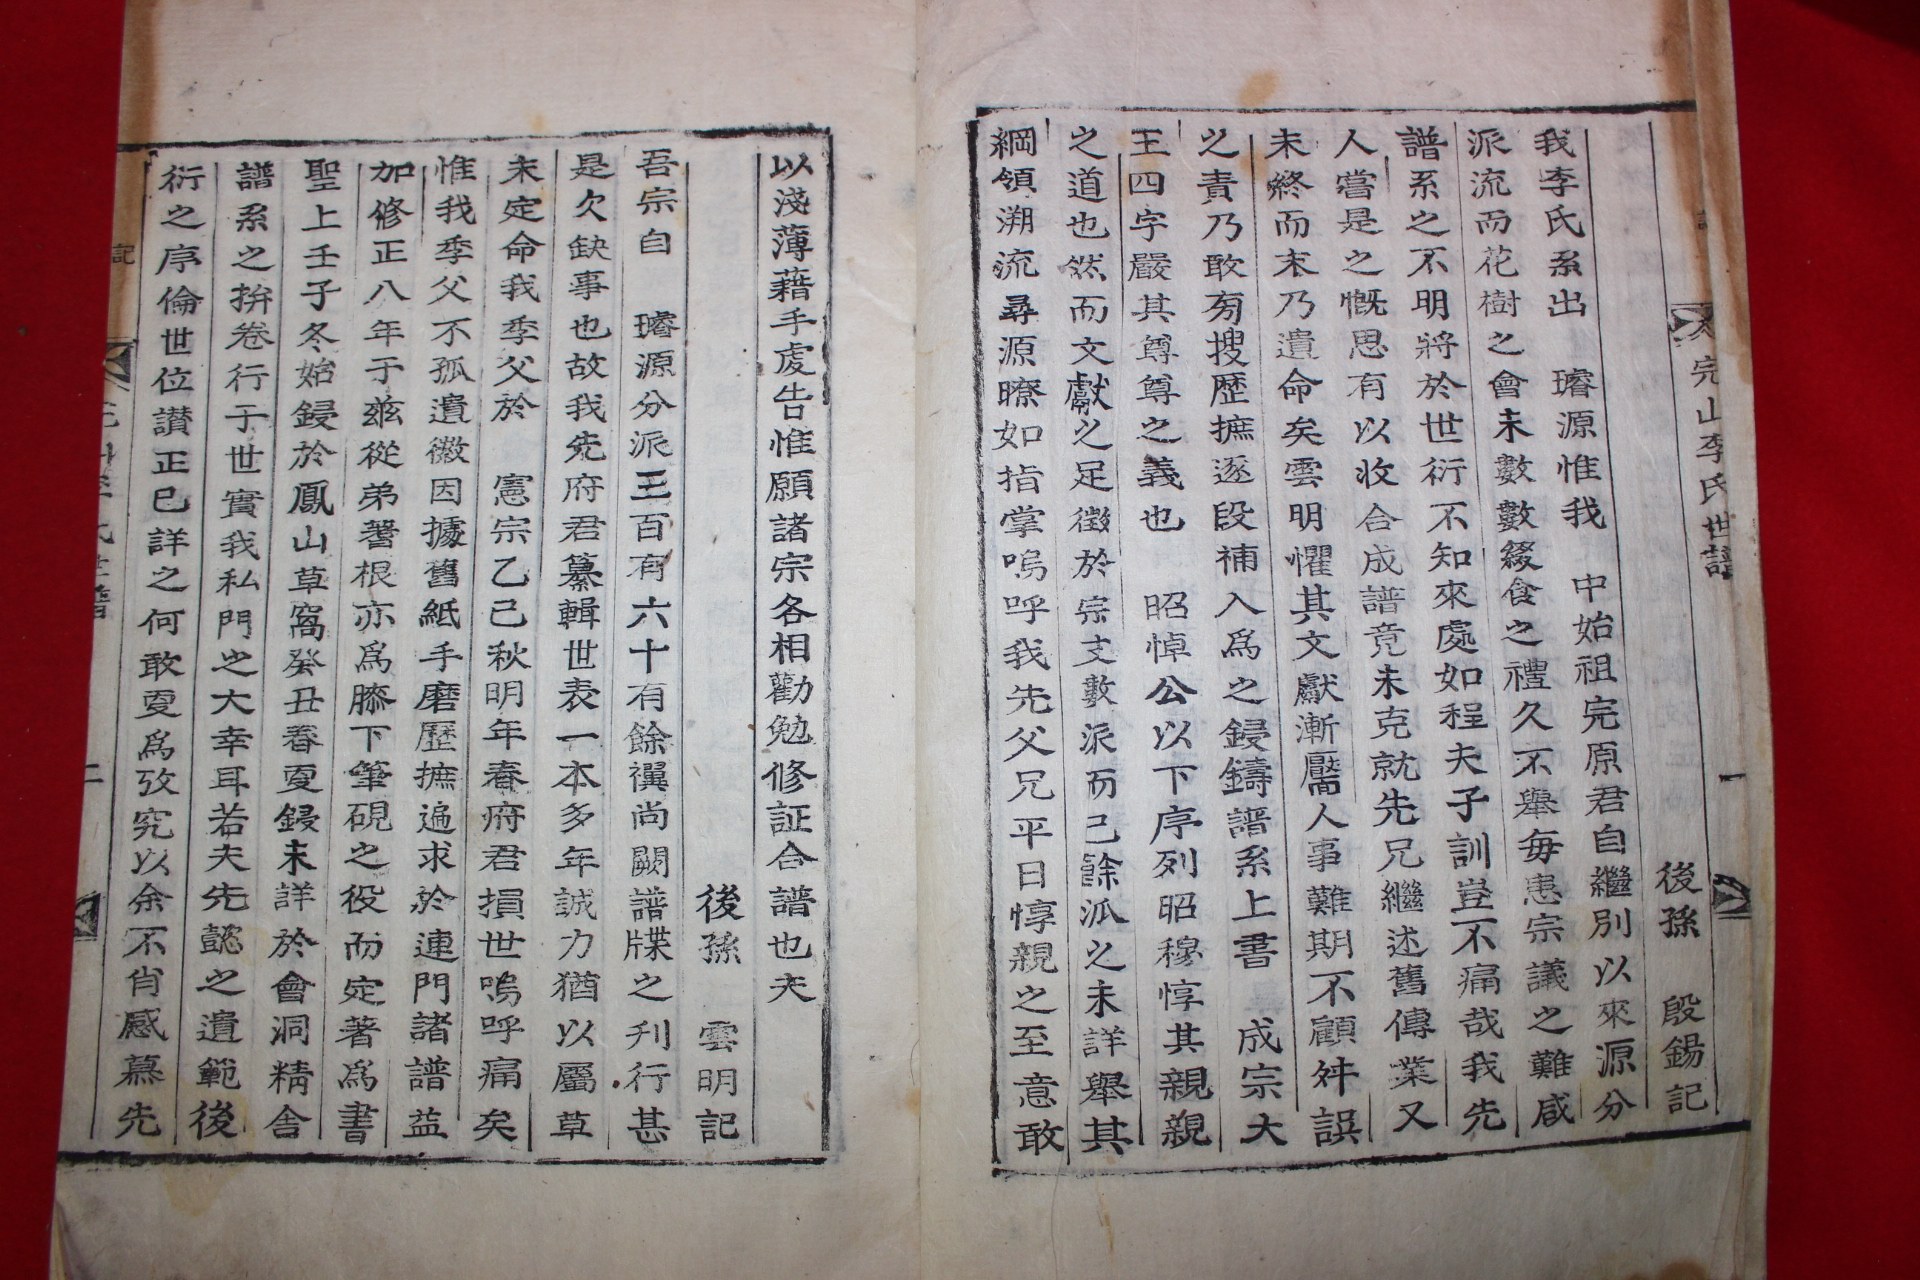 完山李氏世譜
一
後孫 殷錫記
我李氏系出 璿源惟我 中始祖完原君自繼別以來源分
派流而花樹之會未數數綴食之禮久不舉每患宗議之難咸
譜系之不明將於世衍不知來處如程夫子訓豈不痛哉我先
人嘗是之慨思有以收合成譜竟未克就先兄繼述舊傳業又
未終而末乃遺命矣雲明懼其文獻漸壓人事難期不顧舛誤
之責乃敢旁搜歷摭逐段補入為之鋟鑄譜系上書 成宗大
王四字嚴其尊尊之義也 昭悼公以下序列昭穆惇其親親
之道也然而文獻之足徵於宗支數派而已餘派之未詳舉其
綱領溯流尋源瞭如指掌嗚呼我先父兄平日惇親之至意敢
以淺薄藉手處告惟願諸宗各相勸勉修証合譜也夫
後孫 雲明記
吾宗自 璿源分派王百有六十有餘禩尚闕譜牒之刊行甚
是欠缺事也故我先府君纂輯世表一本多年誠力猶以屬草
未定命我季父於 憲宗乙己秋明年春府君損世嗚呼痛矣
惟我季父不孤遺徽因據舊紙手磨歷摭遍求於連門諸譜益
加修正八年于玆從弟蓍根亦為滕下筆硯之役而定著為書
聖上壬子冬始鋟於鳳山草窩癸丑春夏鋟未詳於會洞精舍
譜系之拚卷行于世實我私門之大幸耳若夫先懿之遺範後
衍之序倫世位讃正已詳之何敢更為攷究以余不肖感慕先
記
二